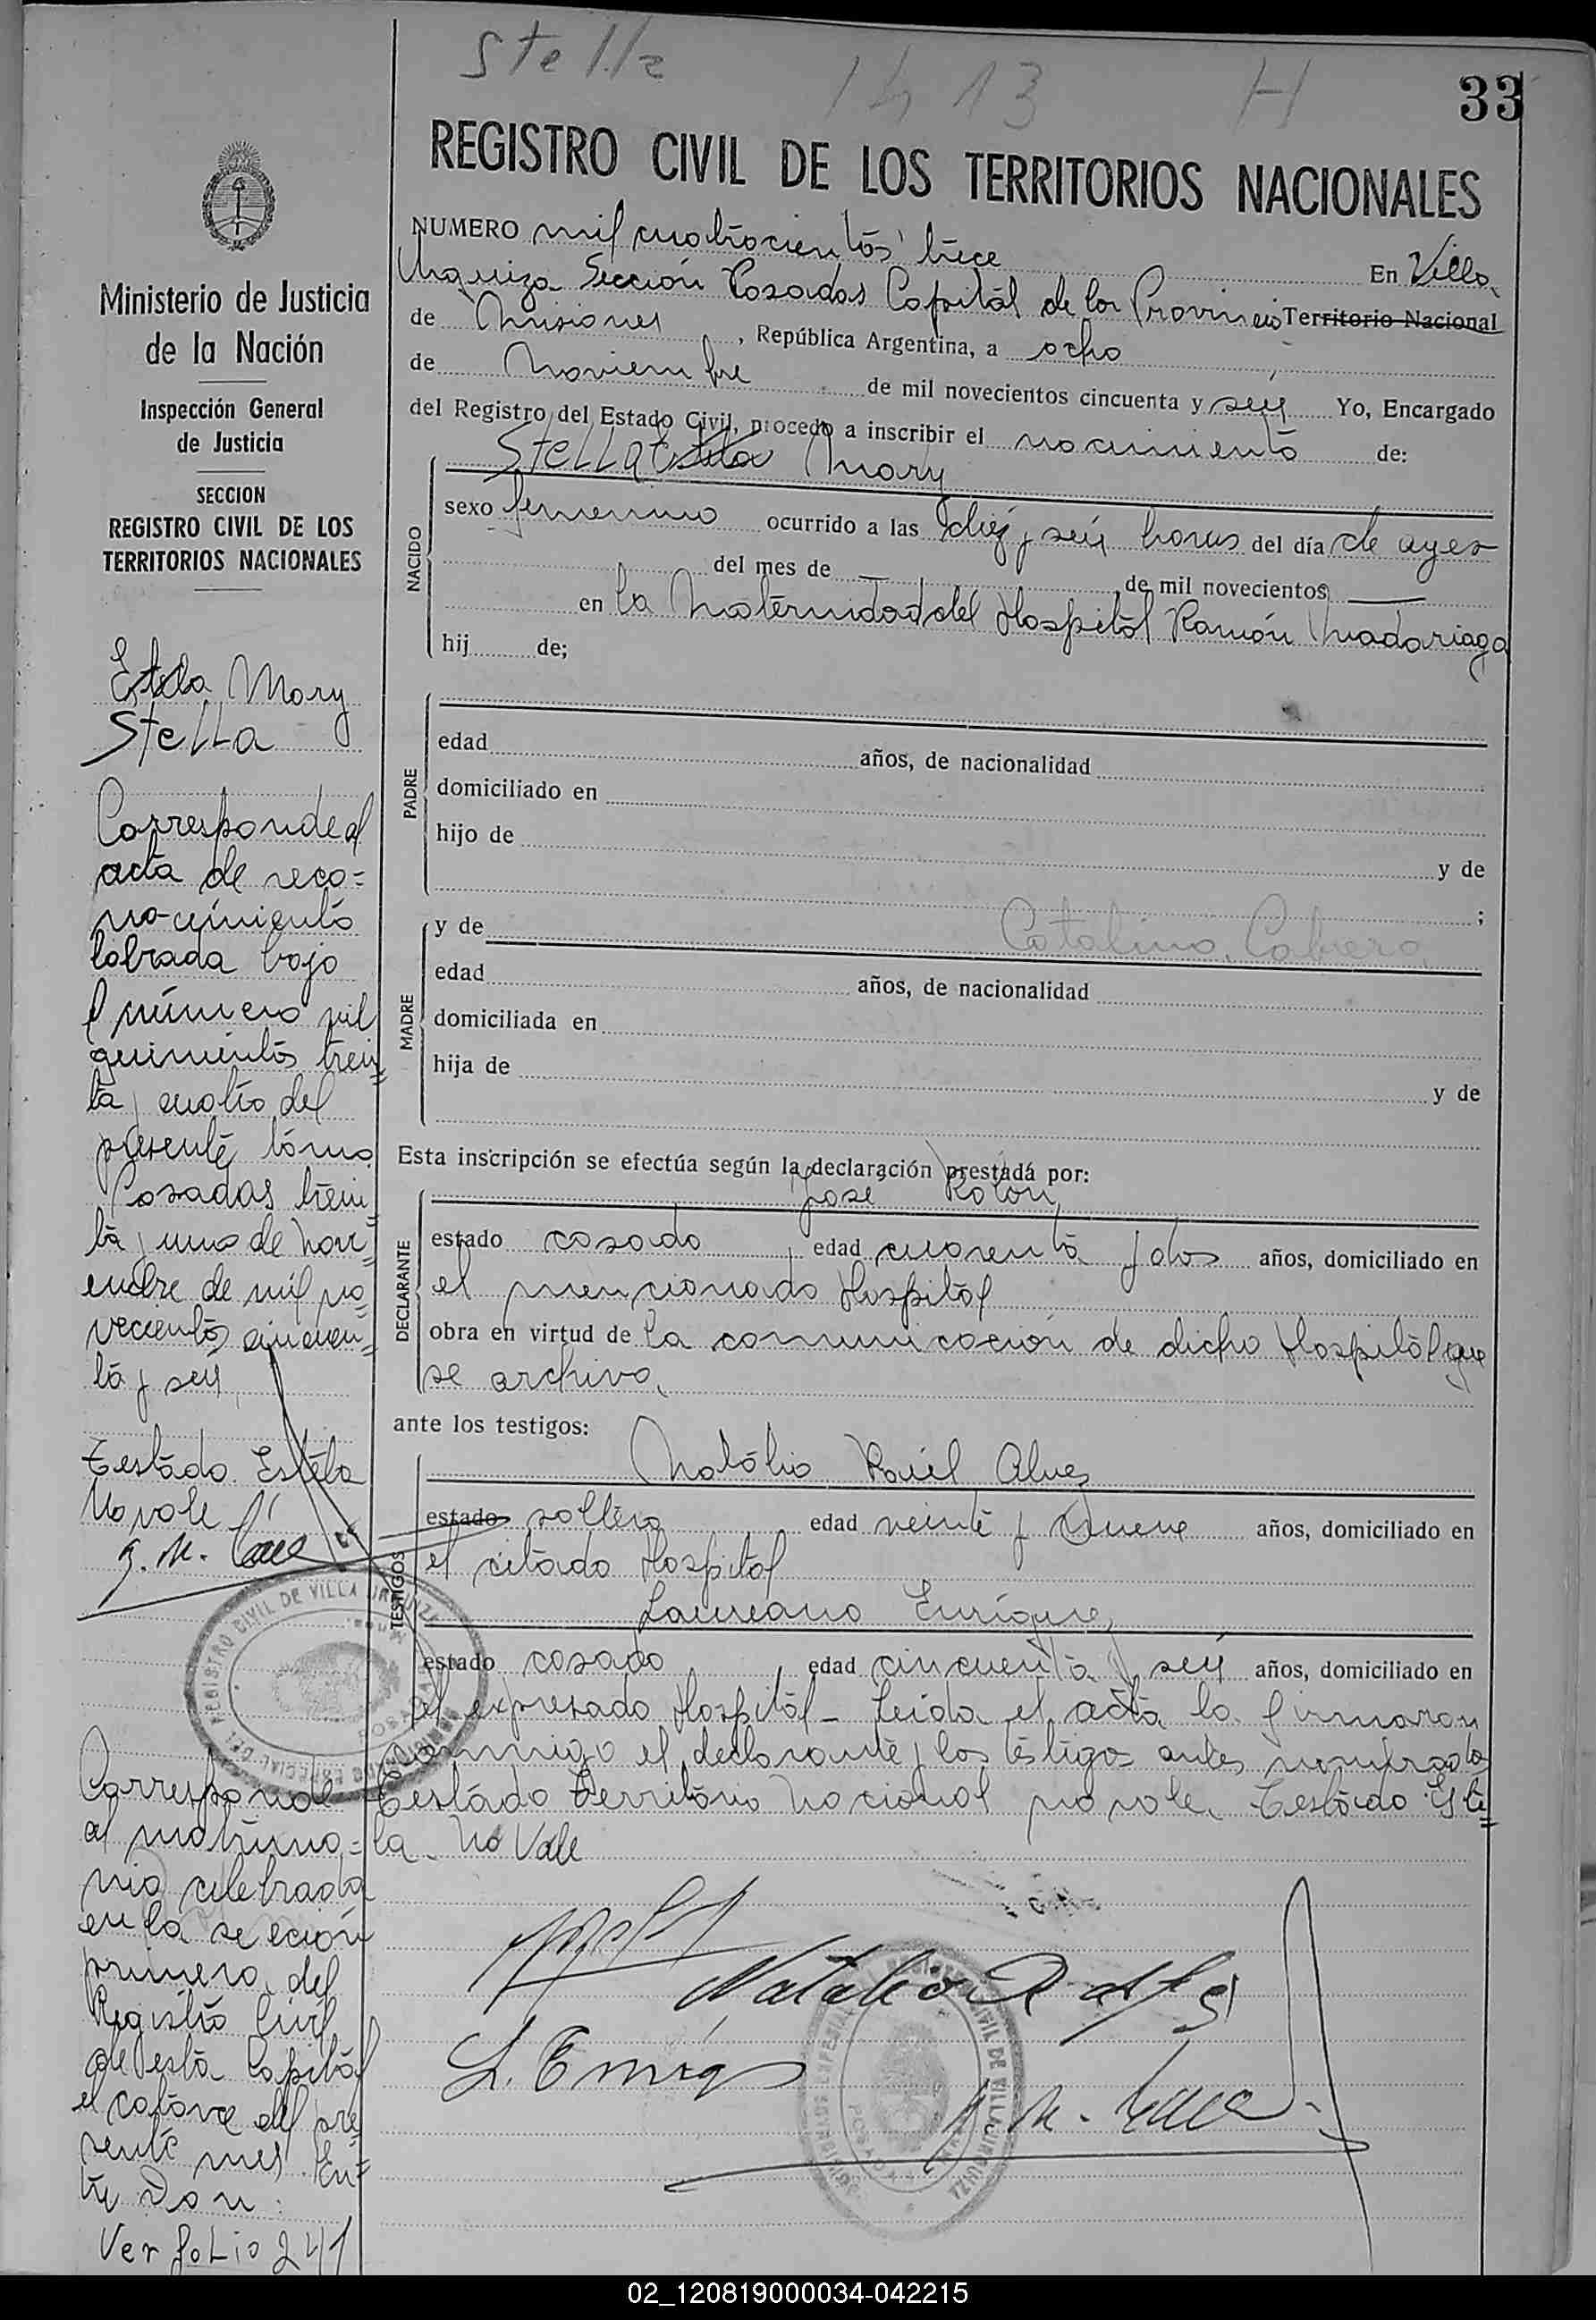 Stella 1413 H
33
REGISTRO CIVIL DE LOS TERRITORIOS NACIONALES
NUMERO mil cuatrocientos trece En Villa
Urquiza Sección Posadas Capital de la Provincia Territorio Nacional
de Misiones, República Argentina, a ocho
de Noviembre de mil novecientos cincuenta y seis Yo, Encargado
del Registro del Estado Civil, procedo a inscribir el nacimiento de:
STELLA Estela Mary
NACIDO
sexo femenino ocurrido a las diez y seis horas del día de ayer
del mes de — de mil novecientos —
en la Maternidad del Hospital Ramón Madariaga
hij de;
PADRE
edad años, de nacionalidad
domiciliado en
hijo de
y de
;
MADRE
y de Catalina Cabrera
edad años, de nacionalidad
domiciliada en
hija de
y de
Esta inscripción se efectúa según la declaración prestada por:
DECLARANTE
José Rolón
estado casado edad cuarenta y dos años, domiciliado en
el mencionado Hospital
obra en virtud de la comunicación de dicho Hospital que
se archiva.
ante los testigos:
TESTIGOS
Natalio Raúl Alves
estado soltero edad veinte y nueve años, domiciliado en
el citado Hospital
Laureano Enrique
estado casado edad cincuenta y seis años, domiciliado en
el expresado Hospital - Leída el acta la firmaron
conmigo el declarante y los testigos antes nombrados
Testado Territorio Nacional no vale. Testado Este=
la. No Vale
L. Enrique
Ministerio de Justicia
de la Nación
Inspección General
de Justicia
SECCION
REGISTRO CIVIL DE LOS
TERRITORIOS NACIONALES
Estela Mary
Stella
Corresponde al
acta de reco=
nocimiento
labrada bajo
el número mil
quinientos trein=
ta y cuatro del
presente tomo
Posadas trein=
ta y uno de Novi=
embre de mil no=
vecientos cincuen=
ta y seis
Testado Estela
No vale
REGISTRO CIVIL DE VILLA URQUIZA
POSADAS
Corresponde
al matrimo=
nio celebrado
en la sección
primera del
Registro Civil
de esta Capital
el catorce del pre=
sente mes En=
tre Don:
Ver folio 241
02_120819000034-042215